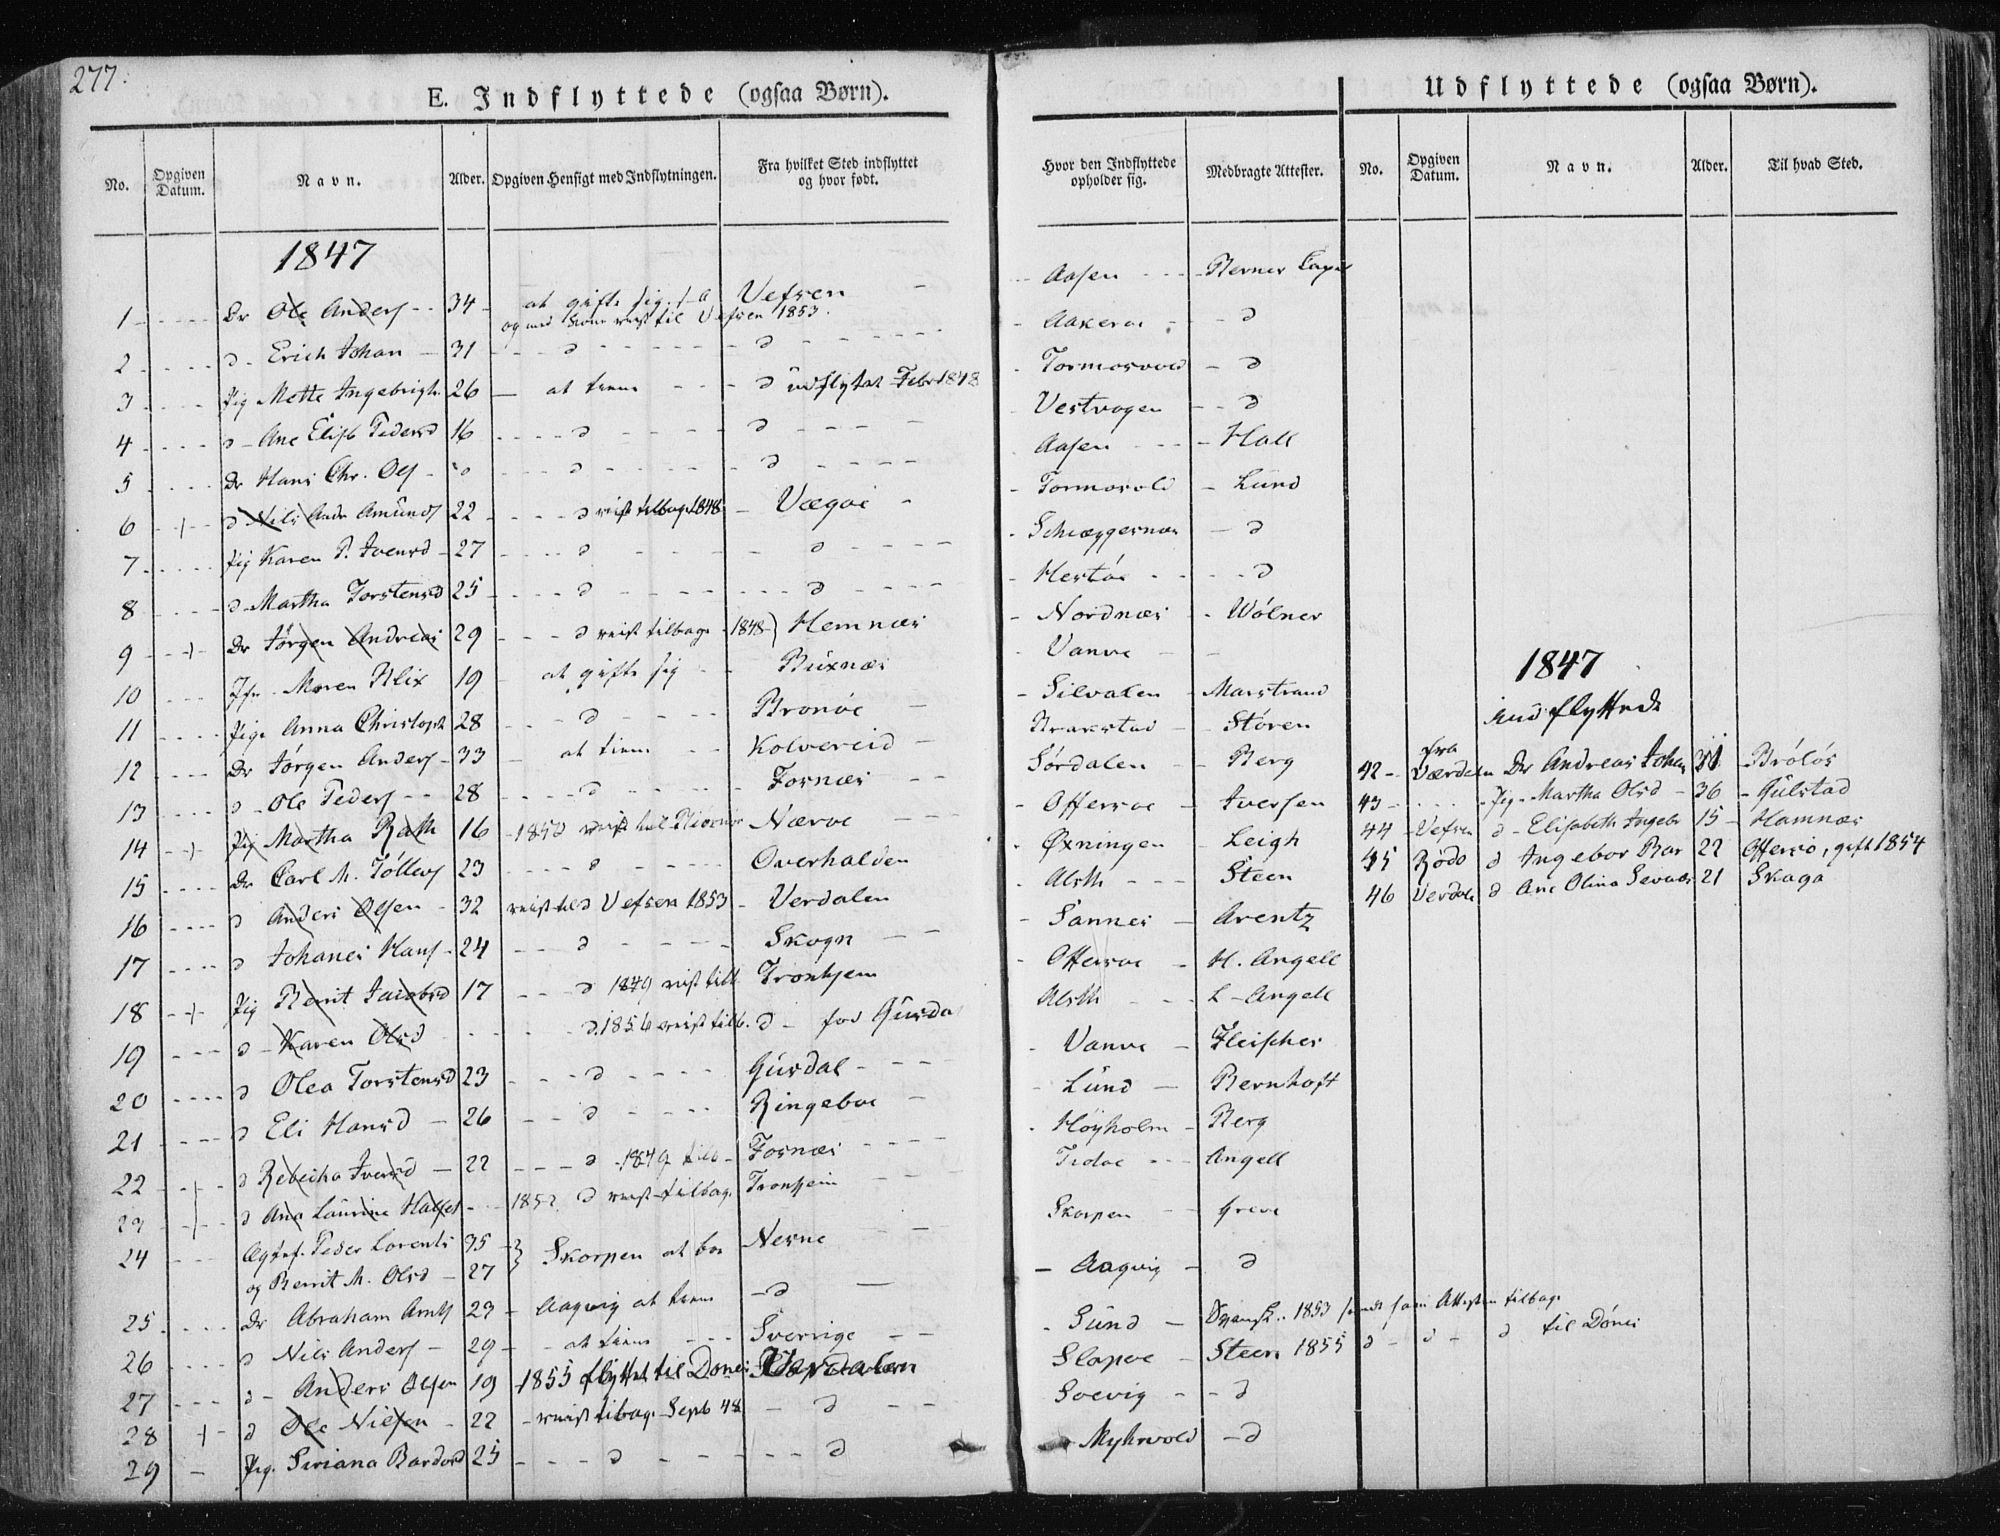 277.
E. Indflyttede (ogsaa Børn).
No.
Opgiven Datum.
Navn.
Alder.
Opgiven Hensigt med Indflytningen.
Fra hvilket Sted indflyttet og hvor født.
1847
1 Dr Ole Anders 34 at gifte sig Vefsen
og med Kone reist til Vefsen 1853.
2 d Erich Johan 31 d d
3 Pig Mette Ingebrigts 26 at tiene d udflyttet Febr 1848
4 d Ane Elisb Pedersd 16 d d
5 Dr Hans Chr. Ols d d
6 + d Nils Andr Amunds 22 d reist tilbage 1848 Vægøe
7 Pig Karen P. Iversd 27 d d
8 d Martha Torstensd 25 d d
9 + Dr Jørgen Andreas 29 d reist tilbage 1848 Hemnæs
10 Jfr Maren Blix 19 at gifte sig Buxnæs
11 Pige Anna Christoph 28 d Bronöe
12 Dr Jørgen Anders 33 at tiene Kolvereid
13 d Ole Peders 28 d Fosnæs
14 + Pig Martha Rath 16 1850 reist til Nærøe
15 Dr Carl M. Tóllevs 23 d Overhalden
16 d Anders Olsen 32 reist til Vefsen 1853 Verdalen
17 d Johanes Hans 24 d Skogn
18 + Pig Berit Jacobsd 17 d 1849 reist tilb Tronhjem
19 d Karen Olsd d. 1856 reist tilb. d fød Gusda
20 d Olea Torstensd 23 d Gusdal
21 d Eli Hansd 26 d Ringeboe
22 + d Rebecha Iversd 22 d 1849 tilb Fosnæs
23 + d Ana Laurine 1852 d reist tilbage Tronhjem
24 Peder Lorents 35 Skorpen at boe Nesne
og Berrit M. Olsd 27
25 Dr Abraham Arnts 23 Aagvig at tiene d
26 d Nils Anders 29 at tiene Sverrige
27 d Anders Olsen 19 1855 flyttet til Dønes Verdalen
28 + d Ole Nielsen 22 reist tilbage Septb 48 d
29 Pig. Siriana Bardosd 25 d d
Hvor den Indflyttede opholder sig.
Medbragte Attester.
Aasen Berner
Aakerøe d
Tormosvold d
Vestvagen d
Aasen Hall
Tormosvold Lund
d
Hestöe d
Nordnæs Wólner
Vanve
Silvalen Marstrand
Brakstad Stören
Sørdalen Berg
Offersøe Iversen
Øxningen Leigh
Alsth Steen
Sannes Arentz
Offersøe H. Angell
Alsth L Angell
Vanve Fleischer
Lund Bernhoft
Höyholm Berg
Tidøe Angell
Skorpen Greve
Aagvig d
Sund Svensk. 1853 Attesten tilbage
Slapøe Steen 1855 d d d til Dønes
Soevig d
Myhrvold d
Udflyttede (ogsaa Børn).
No.
Opgiven Datum.
Navn.
Alder.
Til hvad Sted.
1847
indflyttede
fra
42 Værdalen Dr Andreas Johan 31 Brölös
43 Pig Martha Olsd 36 Gulstad
44 Vefsen d Elisabeth Ingebr 15 Hamnæs
45 Rödö d Ingebor Bar 22 Offersö, gift 1854
46 Verdale d Ane Olina 21 Skaga